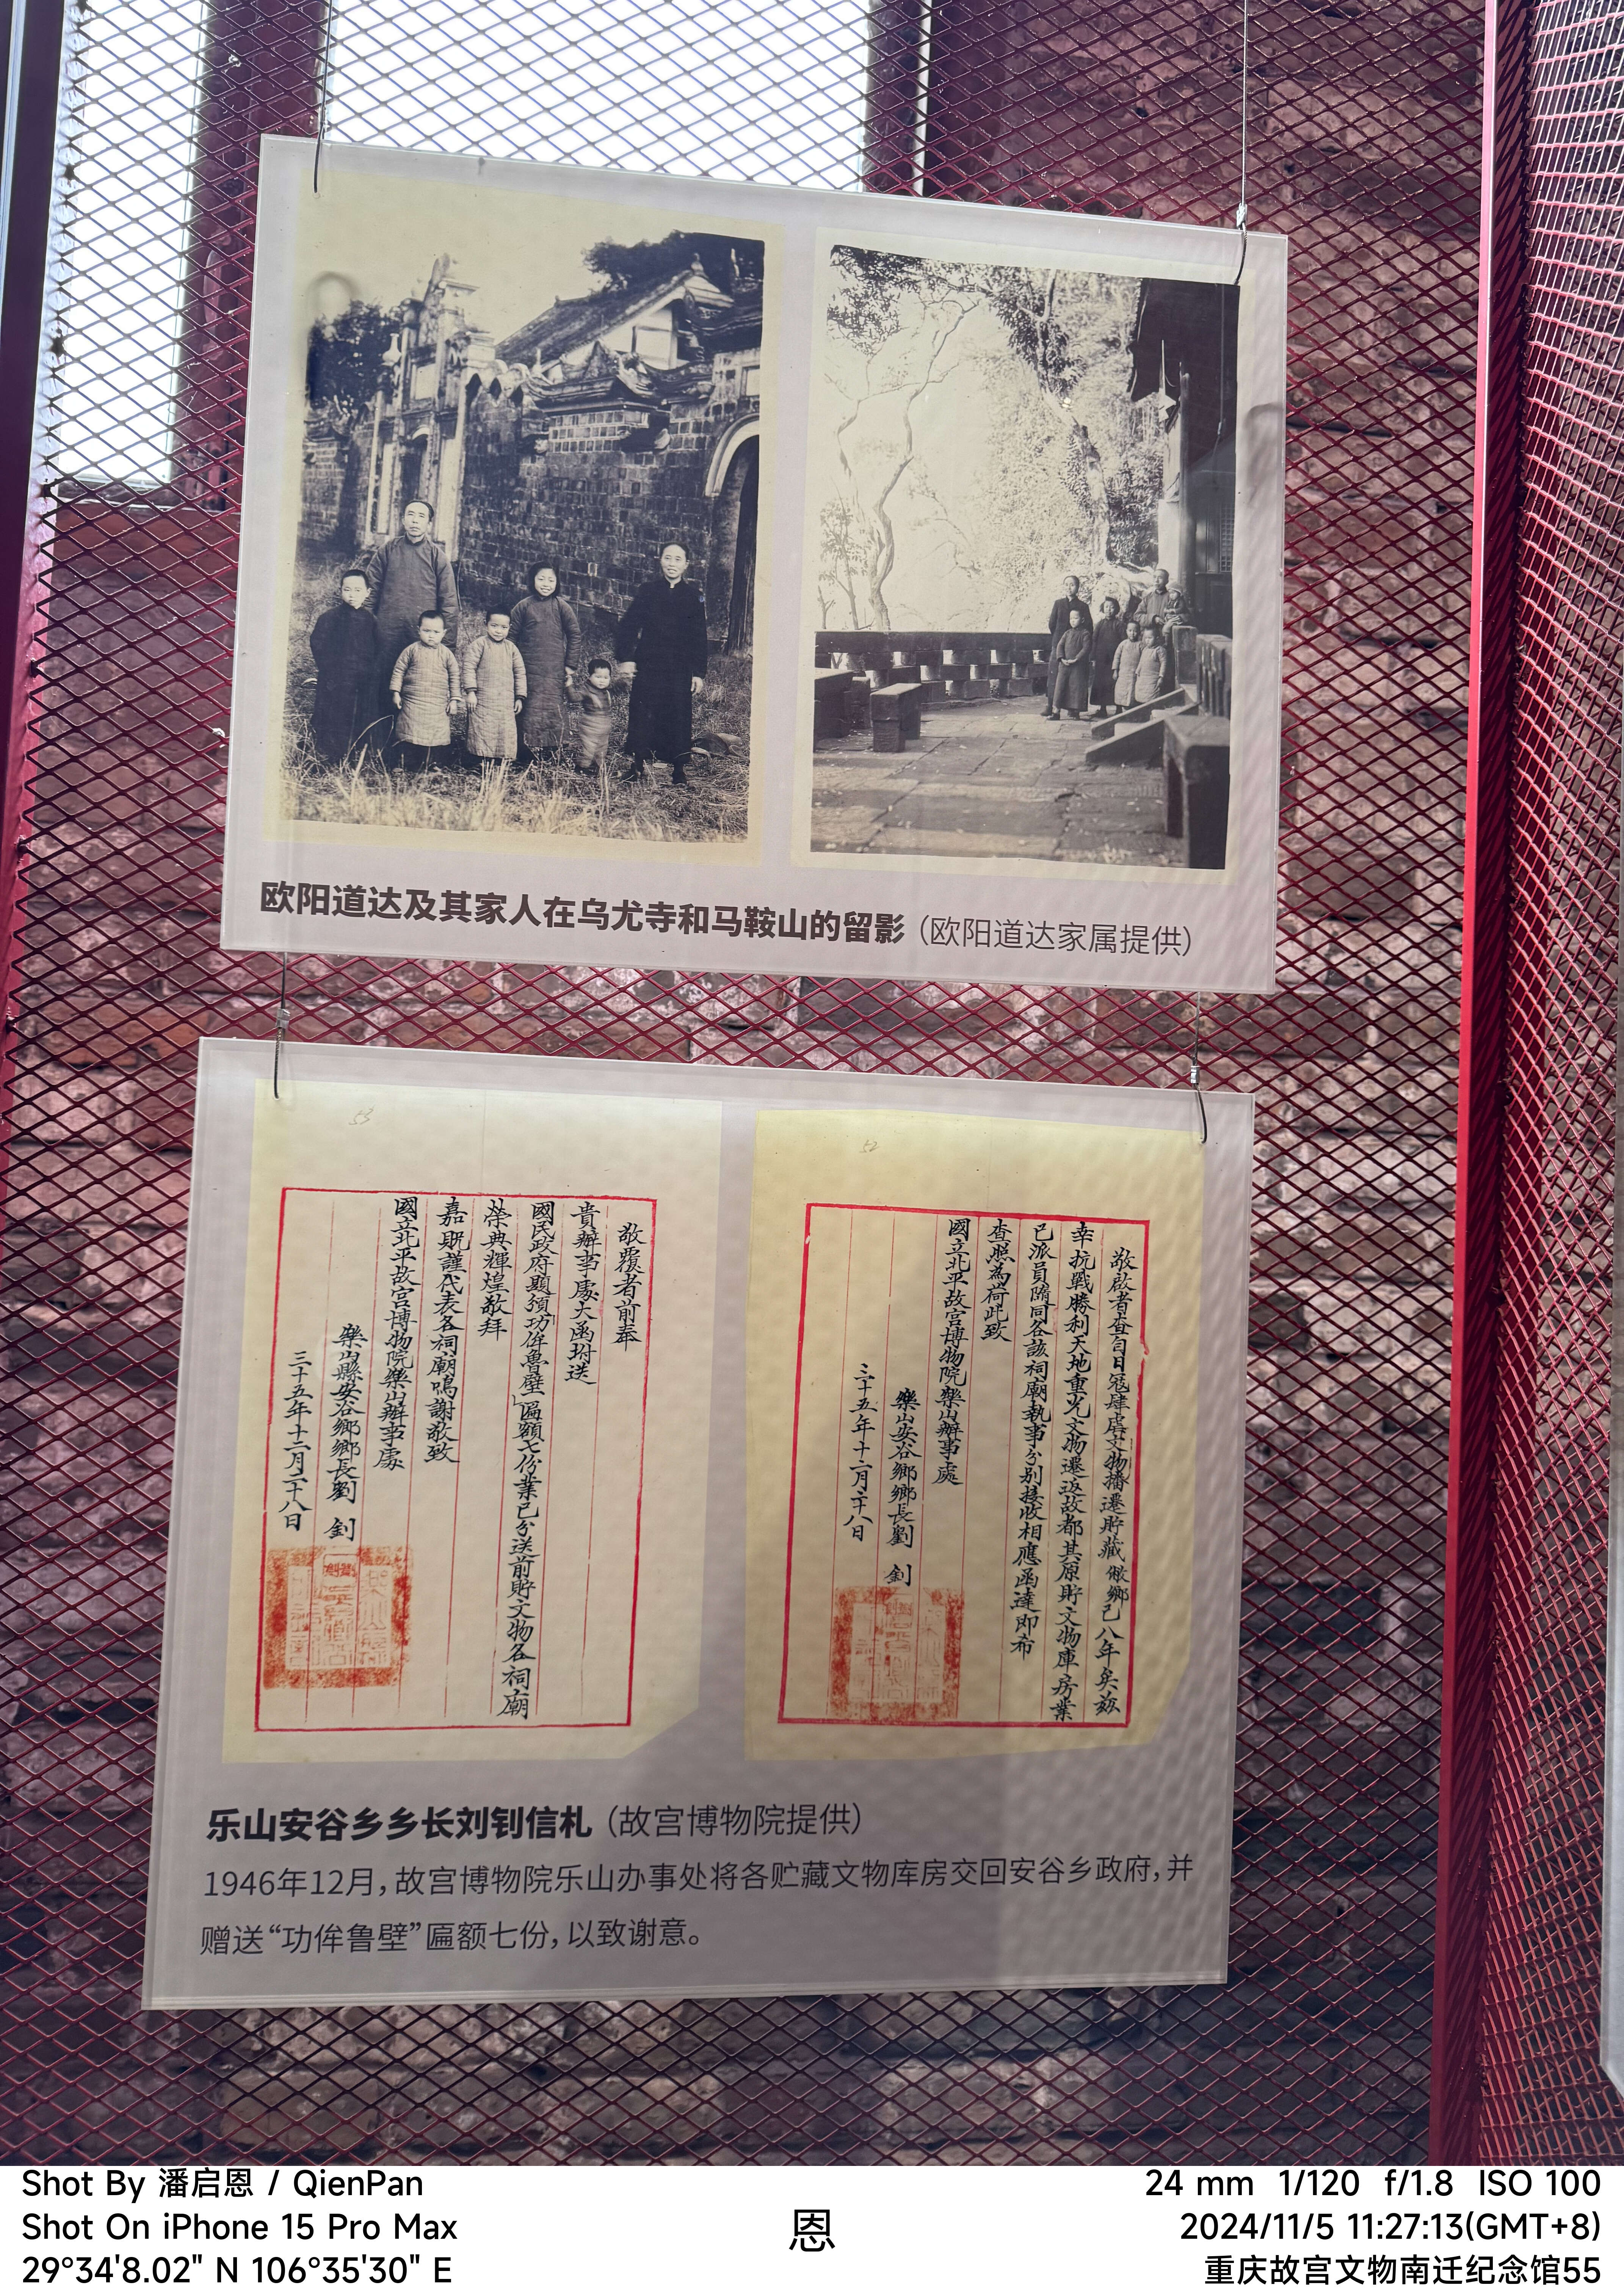 欧阳道达及其家人在乌尤寺和马鞍山的留影（欧阳道达家属提供）
53
敬覆者前奉
貴辦事處大函坿送
國民政府題頒「功侔魯壁」匾額七份業已分送前貯文物各祠廟
榮典輝煌敬拜
嘉貺謹代表各祠廟鳴謝敬致
國立北平故宮博物院樂山辦事處
樂山縣安谷鄉鄉長劉 釗
三十五年十二月二十八日
52
敬啟者查自日寇肆虐文物播遷貯藏敝鄉已八年矣茲
幸抗戰勝利天地重光文物還返故都其原貯文物庫房業
已派員隨同各該祠廟執事分別接收相應函達即希
查照為荷此致
國立北平故宮博物院樂山辦事處
樂山安谷鄉鄉長劉 釗
三十五年十二月二十八日
乐山安谷乡乡长刘钊信札（故宫博物院提供）
1946年12月，故宫博物院乐山办事处将各贮藏文物库房交回安谷乡政府，并
赠送“功侔鲁壁”匾额七份，以致谢意。
Shot By 潘启恩 / QienPan
Shot On iPhone 15 Pro Max
29°34'8.02" N 106°35'30" E
恩
24 mm 1/120 f/1.8 ISO 100
2024/11/5 11:27:13(GMT+8)
重庆故宫文物南迁纪念馆55